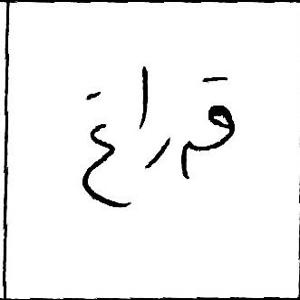 قم راغ